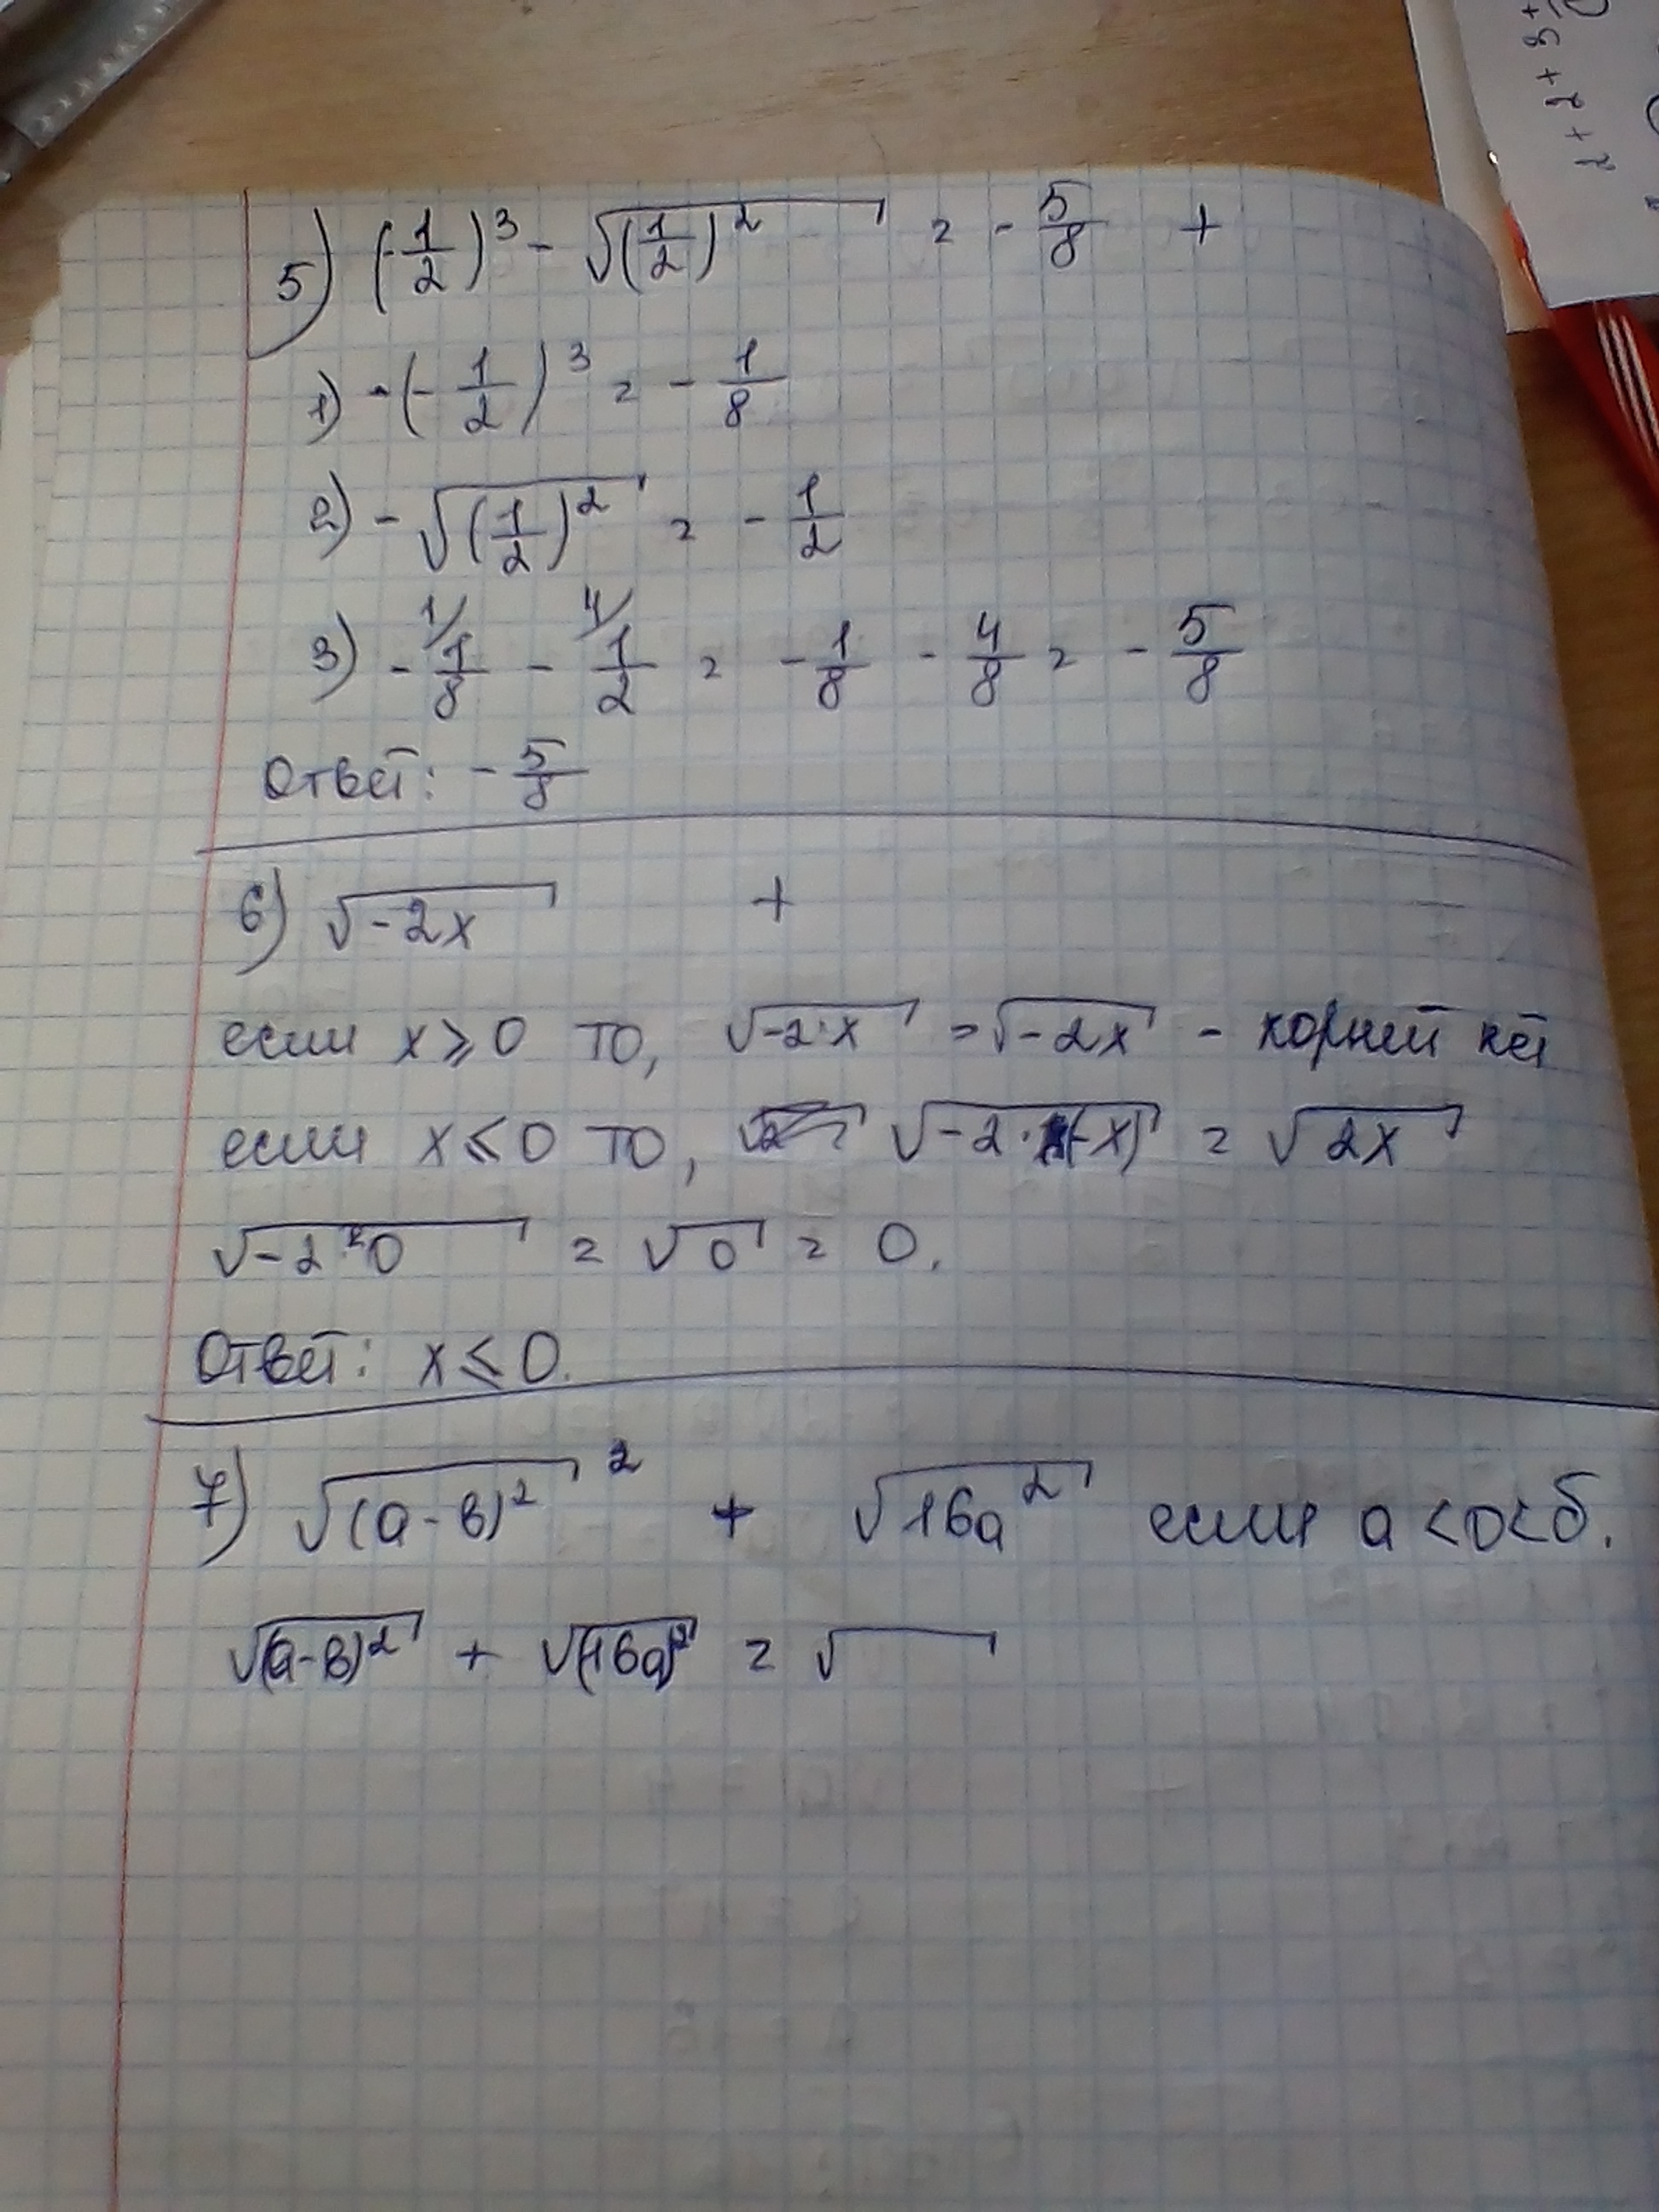 5) (-1/2)³ - √(1/2)² = -5/8 +
1) -(-1/2)³ = -1/8
2) -√(1/2)² = -1/2
3) -1/8 - 1/2 = -1/8 - 4/8 = -5/8
Ответ: -5/8
6) √-2x +
если x ⩾ 0 то, √-2·x = √-2x - корней нет
если x ⩽ 0 то, √-2·(-x) = √2x
√-2·0 = √0 = 0.
Ответ: x ⩽ 0.
7) √(a-в)² ² + √16a² если a<0<б.
√(a-в)² + √(16a)² = √
2+2+3+